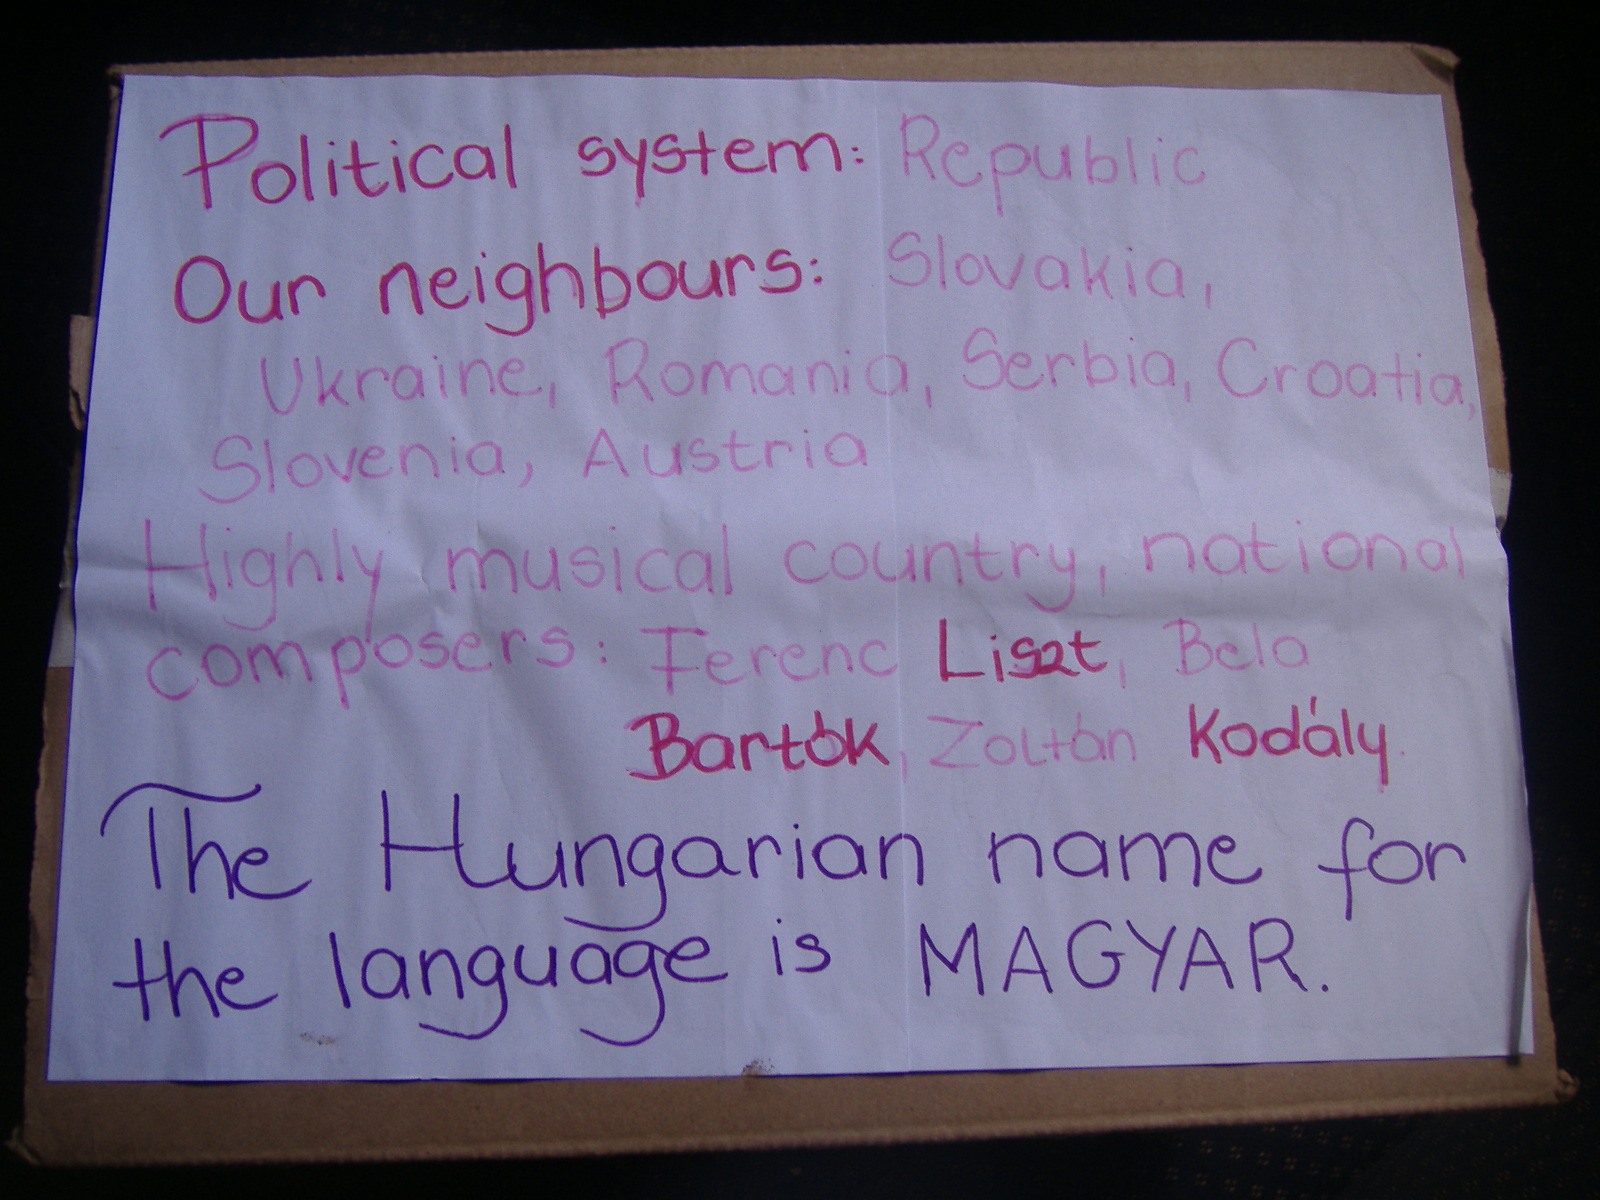 Political system: Republic
Our neighbours: Slovakia,
Ukraine, Romania, Serbia, Croatia,
Slovenia, Austria
Highly musical country, national
composers: Ferenc Liszt, Bela
Bartók, Zoltán Kodály.
The Hungarian name for
the language is MAGYAR.